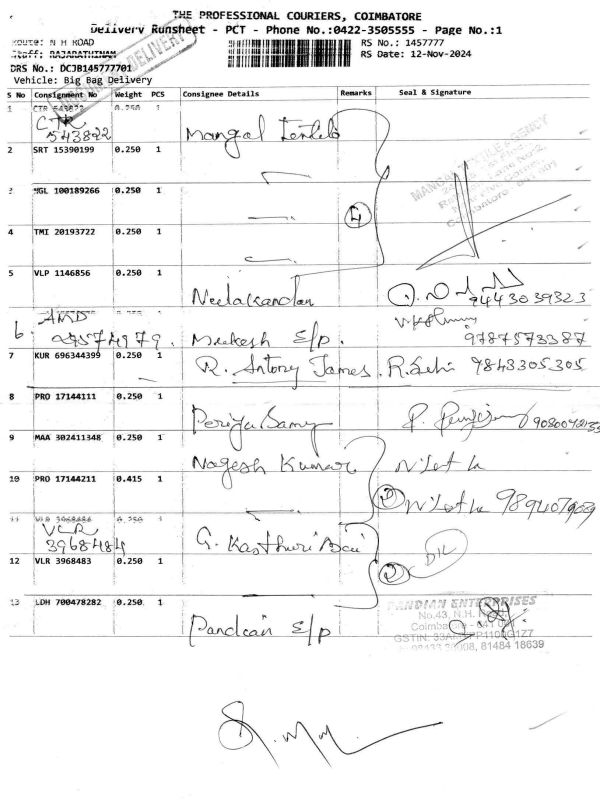 THE PROFESSIONAL COURIERS, COIMBATORE
Delivery Runsheet - PCT - Phone No.:0422-3505555 - Page No.:1
Route: N H ROAD
RS No.: 1457777
Staff: RAJARATHINAM
RS Date: 12-Nov-2024
DRS No.: DCJB145777701
Vehicle: Big Bag Delivery
DELIVERY
S No Consignment No Weight PCS Consignee Details Remarks Seal & Signature
1 CTR 543822 0.250 1
CTR 543822 Mangal
2 SRT 15390199 0.250 1
3 MGL 100189266 0.250 1
4
4 TMI 20193722 0.250 1
5 VLP 1146856 0.250 1
Neelakandan 9443039323
6. AMD 0.250 1
Mukesh E/p. 9787573387
7 KUR 696344399 0.250 1
R. Antony James. 9843305305
8 PRO 17144111 0.250 1
Periya Samy
9 MAA 302411348 0.250 1
Nagesh Kumar
10 PRO 17144211 0.415 1
2
11 VLR 3968484 0.250 1
VLR 3968484 G. Kasthuri Bai
12 VLR 3968483 0.250 1
2
13 LDH 700478282 0.250 1
Pandian E/p
PANDIAN ENTERPRISES
No.43, N.H. Road,
Coimbatore - 641 001
81484 18639